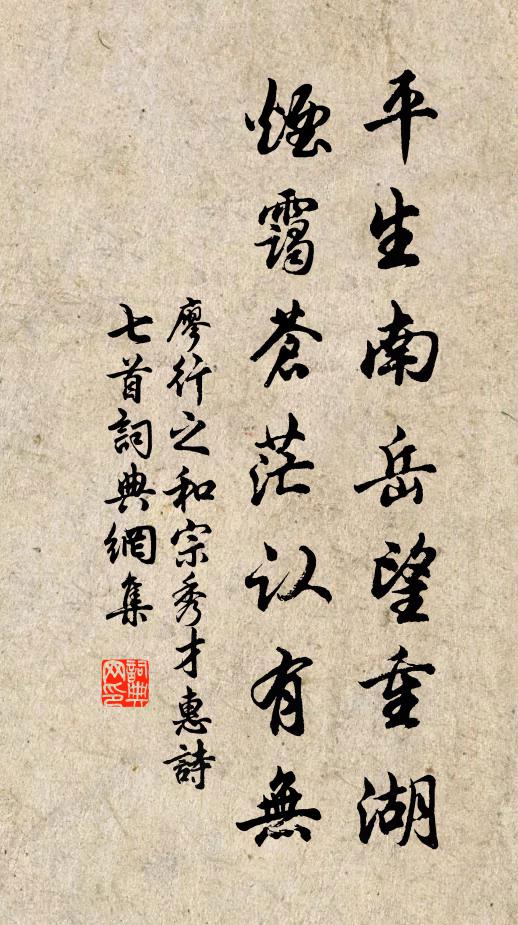 平生南岳望重湖
煙靄蒼茫认有無
廖行之和宗秀才惠詩
七首詞典網集
詞典网印